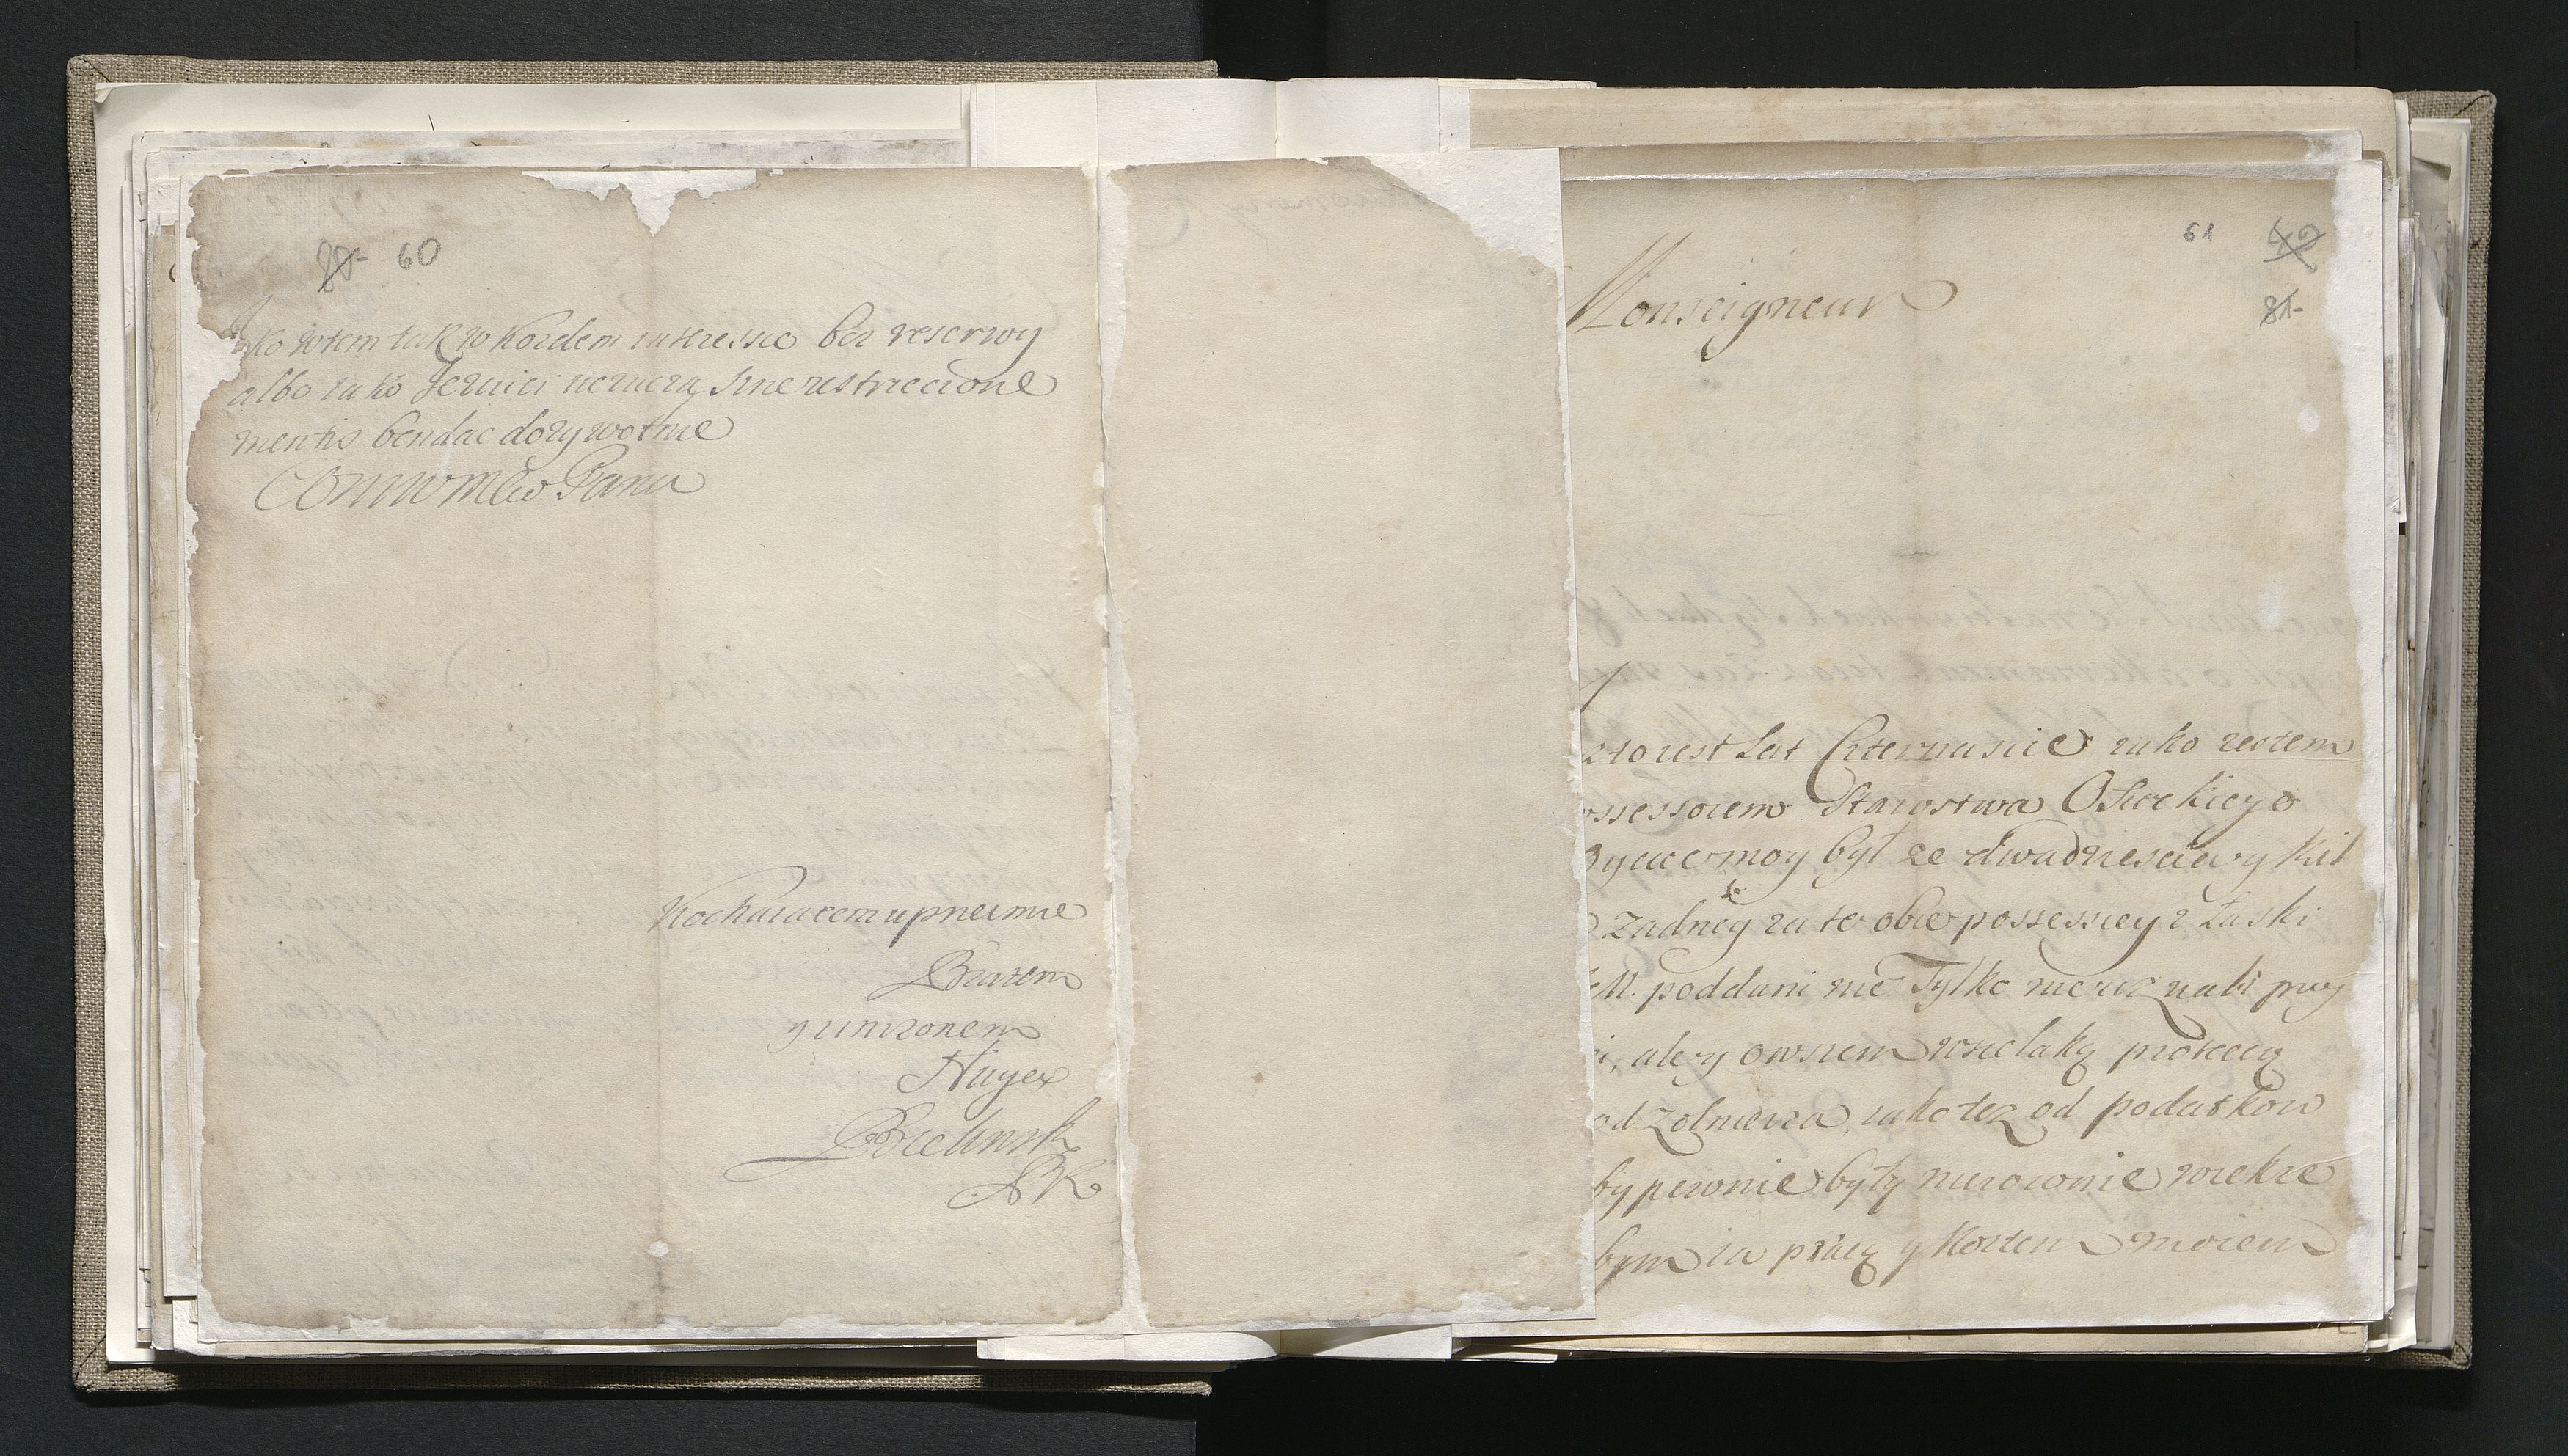 60
ko wtem tak w Kozdem interessie bez reserwy
albo iako Jezuici neruczą sine restriccione
mentis bendac dozywotnie
WMM Pana
Kochaiacem uprzeimie
Bratem
y unizonem
Sługą
Bielinsk
61
81-
Monseigneur
to iest Lat Czternascie iako iestem
ossessorem Starostwa Osieckiego
Oyciec moy był ze dwadziescia y kil
zadney za te obie possessiey z Łaski
M. poddani nie Tylko nieraznali przy
i, ale y owszem wszelaką protecią
od Zolnierza, iako tez od podatkow
by pewnie były nierownie wiekze
bym za pracą y Kosztem moiem